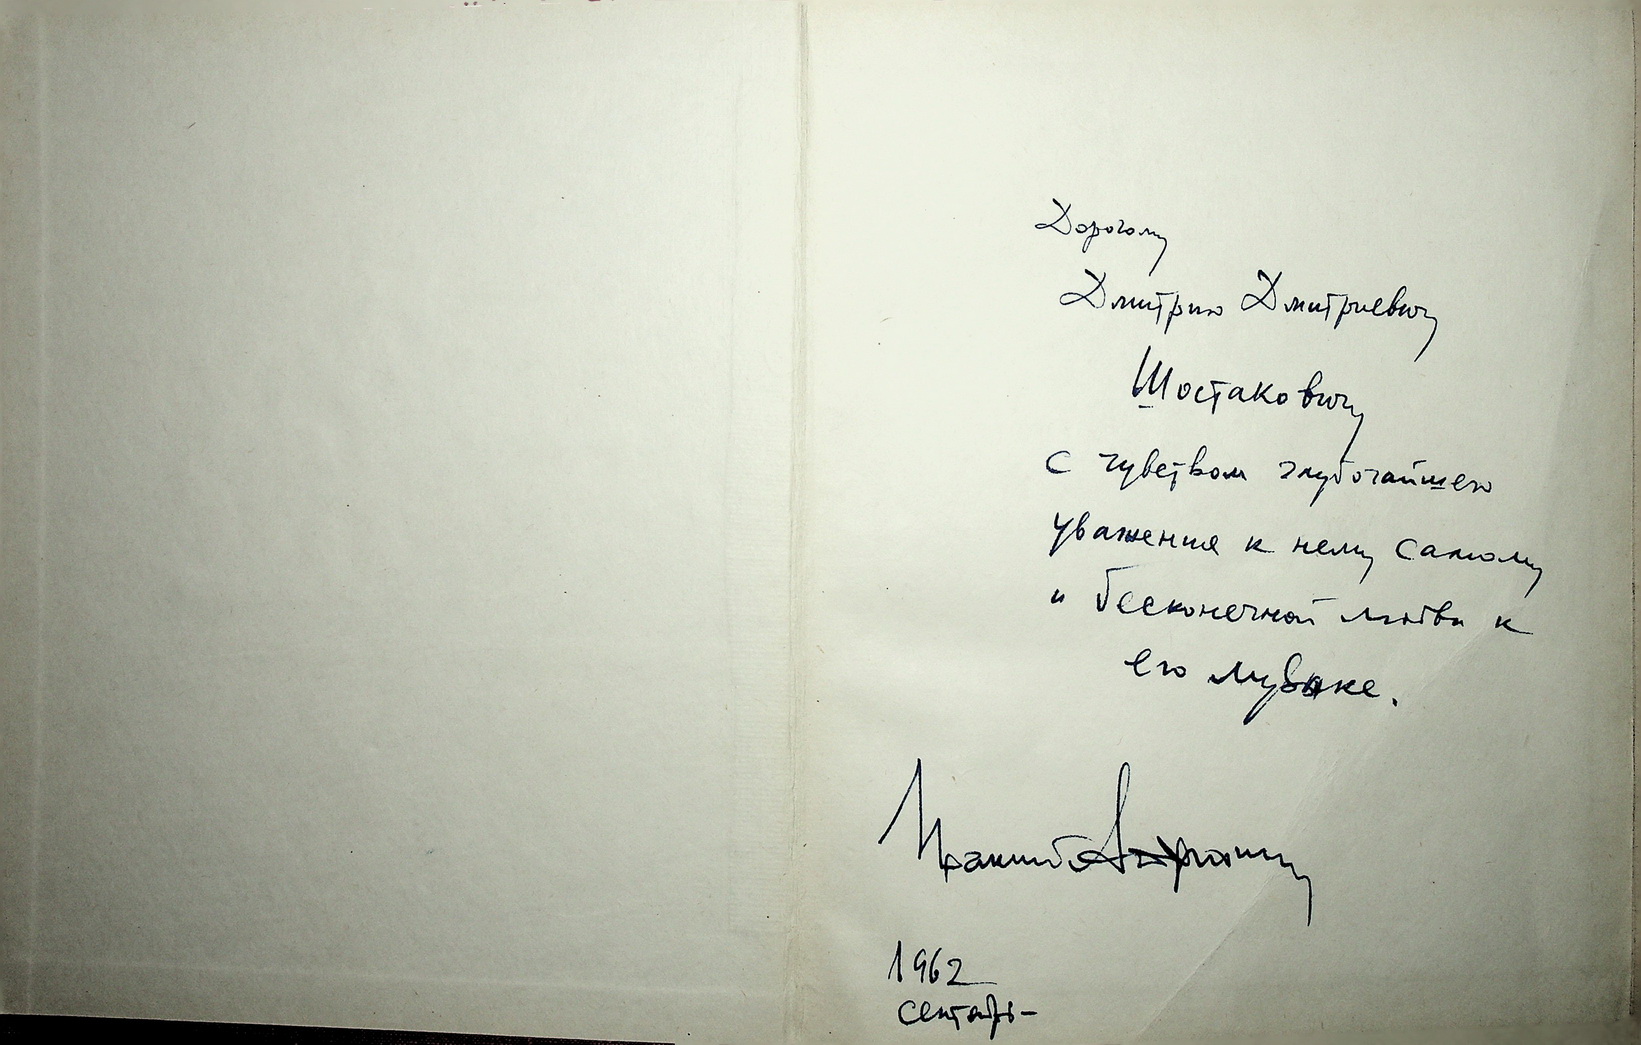 Дорогому
Дмитрию Дмитриевичу
Шостаковичу
с чувством глубочайшего
уважения к нему самому
и бесконечной любви к
его музыке.
Ираклий Андроников
1962
сентябрь